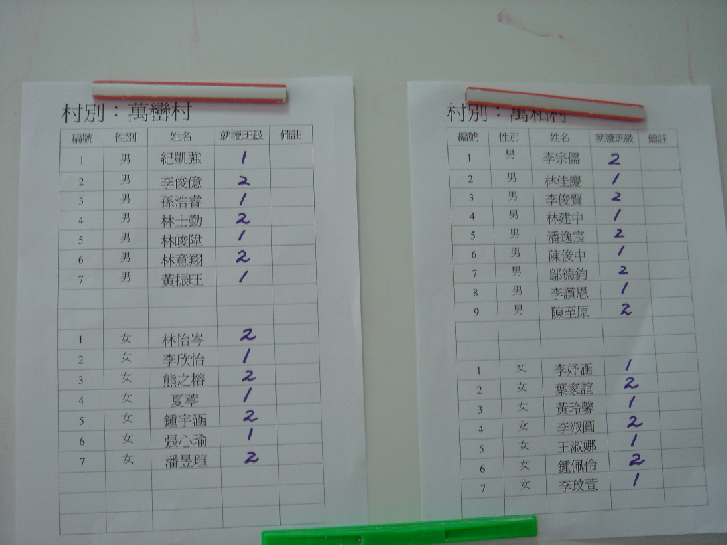 村別：萬巒村
編號 性別 姓名 就讀班級 備註
1 男 紀凱強 1
2 男 李俊億 2
3 男 孫浩睿 1
4 男 林士勤 2
5 男 林峻陞 1
6 男 林意翔 2
7 男 黃振旺 1
1 女 林怡岑 2
2 女 李欣怡 1
3 女 熊之榕 2
4 女 夏華 1
5 女 鍾宇涵 2
6 女 張心瑜 1
7 女 潘昱瑄 2
村別：萬和村
編號 性別 姓名 就讀班級 備註
1 男 李宗儒 2
2 男 林佳慶 1
3 男 李俊賢 2
4 男 林建中 1
5 男 潘逸宏 2
6 男 陳俊中 1
7 男 鄔德鈞 2
8 男 李讚恩 1
9 男 陳至原 2
1 女 李妤涵 1
2 女 葉家誼 2
3 女 黃玲馨 1
4 女 李 圓 2
5 女 王淑娜 1
6 女 鍾佩伶 2
7 女 李玟萱 1